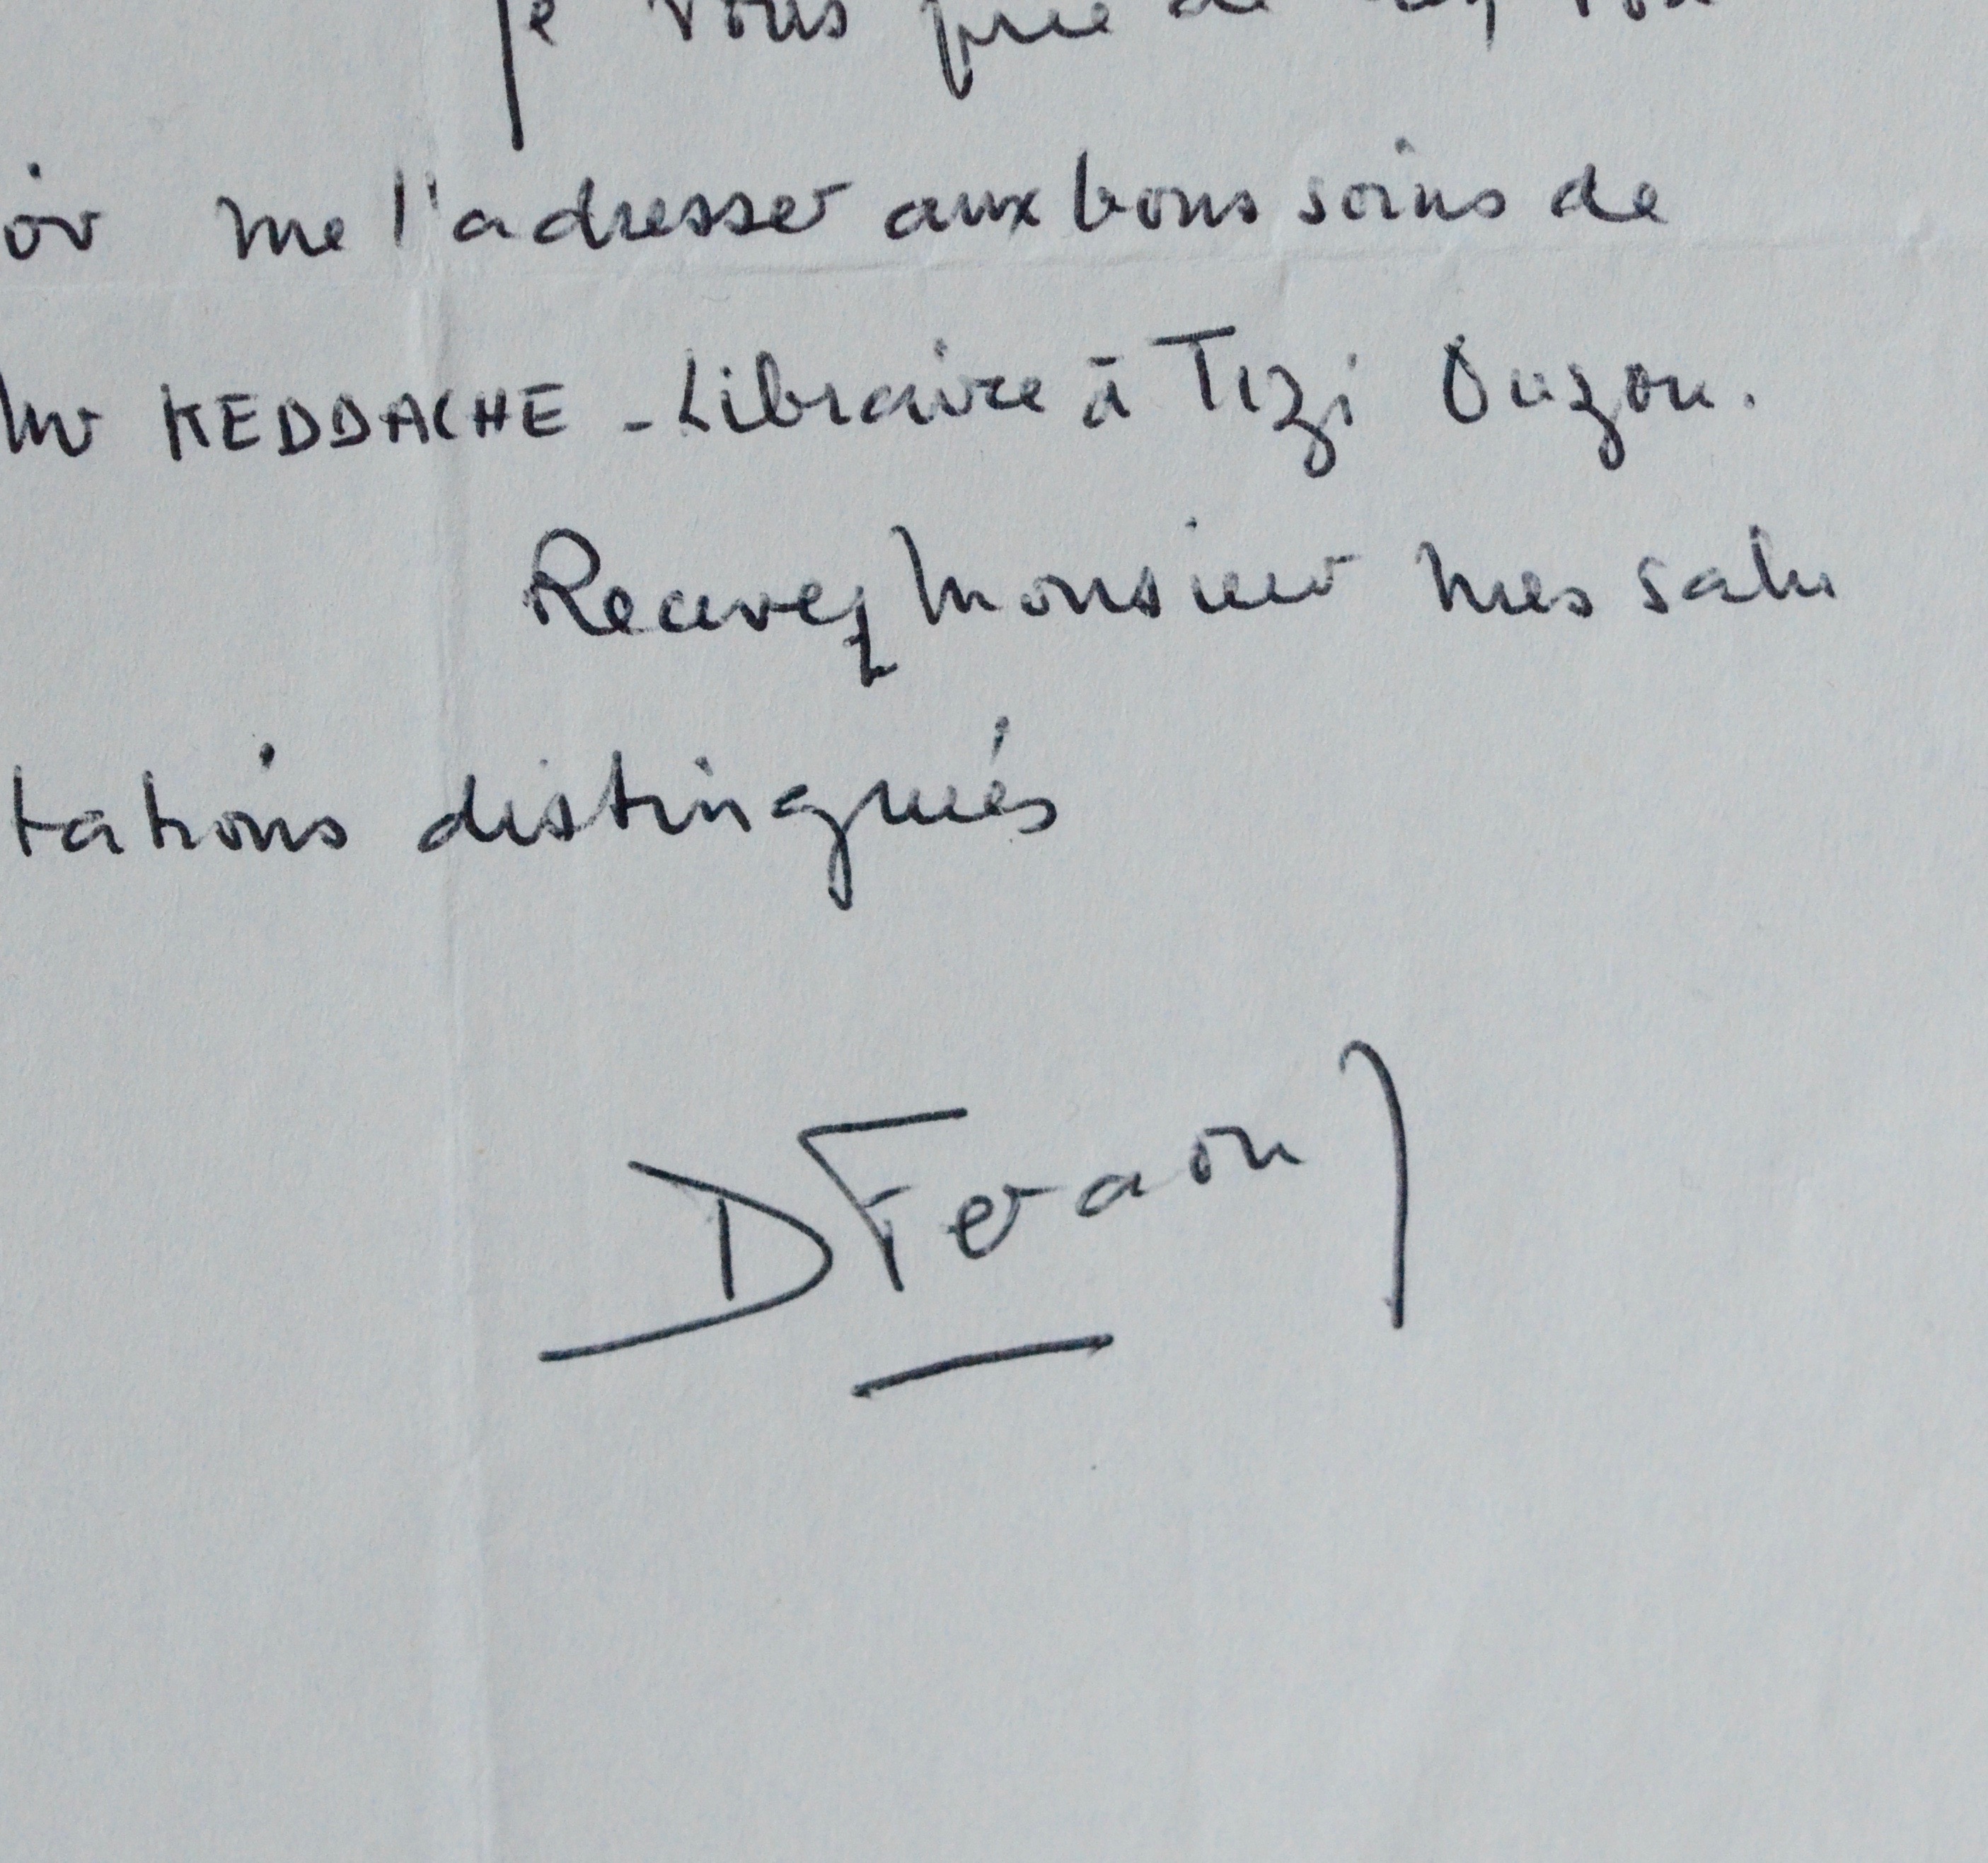 je vous prie de
oir me l'adresser aux bons soins de
Mr KEDDACHE - Libraire à Tizi Ouzou.
Recevez Monsieur mes salu
tations distingués
D Feraoun